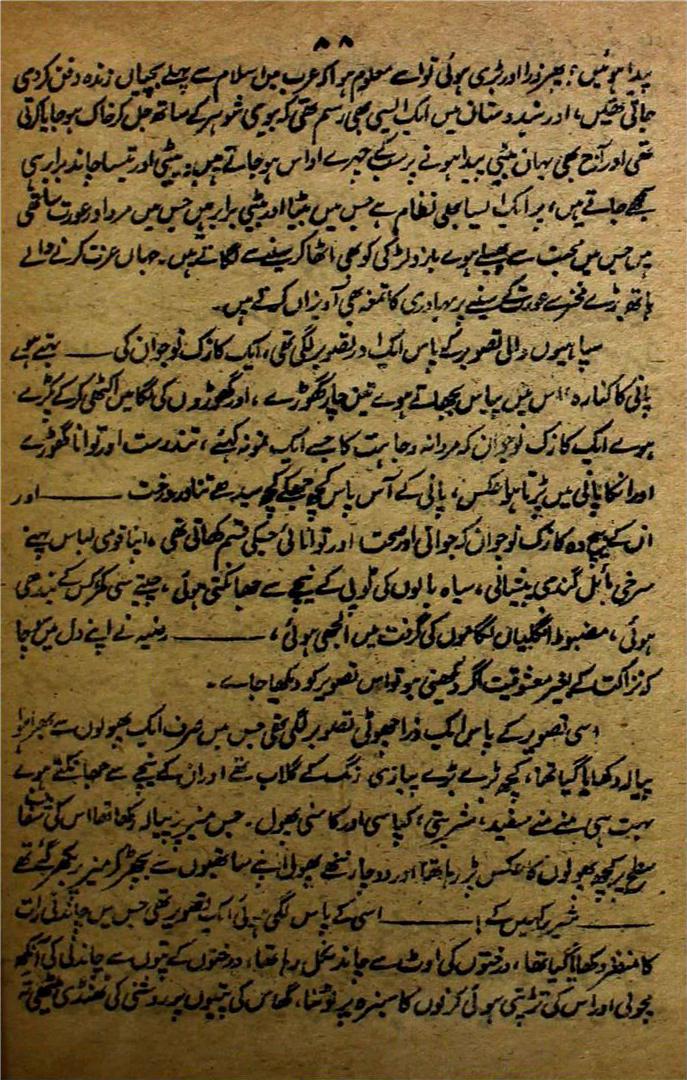 ۸۸
پیدا ہوئیں؛ پھر ذرا اور بڑی ہوئی تو اسے معلوم ہوا کہ عرب میں اسلام سے پہلے بچیاں زندہ دفن کر دی
جاتی تھیں، اور ہندوستان میں ایک ایسی بھی رسم تھی کہ بیوی شوہر کے ساتھ جل کر خاک ہو جایا کرتی
تھی اور آج بھی یہاں بیٹی پیدا ہونے پر سب کے چہرے اداس ہو جاتے ہیں۔ بیٹی اور
جاتے ہیں، پر ایک ایسا بھی نظام ہے جس میں بیٹا اور بیٹی برابر ہیں جس میں مرد اور عورت ساتھی
ہیں جس میں محبت سے پھیلے ہوے بازو لڑکی کو بھی اٹھا کر سینے سے لگاتے ہیں۔ جہاں عزت کرنے والے
ہاتھ بڑے فخر سے عورت کے سینے پر بہادری کا تمغہ بھی آویزاں کرتے ہیں۔
سپاہیوں والی تصویر کے پاس ایک اور تصویر لگی تھی، ایک کازک نوجوان کی —— بہتے ہوے
پانی کا کنارہ، اس میں پیاس بجھاتے ہوے تین چار گھوڑے، اور گھوڑوں کی لگامیں اکٹھی کر کے پکڑے
ہوے ایک کازک نوجوان کہ مردانہ وجاہت کا جسے ایک نمونہ کہیئے، تندرست اور توانا گھوڑے
اور انکا پانی میں پڑتا ہوا عکس، پانی کے آس پاس کچھ جھکے کچھ سیدھے تناور درخت —— اور
ان کے بیچ وہ کازک نوجوان کہ جوانی اور صحت اور توانائی جسکی قسم کھاتی تھی، اپنا قومی لباس پہنے
سرخی مائل گندمی پیشانی، سیاہ بالوں کی ٹوپی کے نیچے سے جھانکتی ہوئی، کے بندھی
ہوئی، مضبوط انگلیاں لگاموں کی گرفت میں الجھی ہوئی، —— رضیہ نے اپنے دل میں سوچا
کہ نزاکت کے بغیر معشوقیت اگر دیکھنی ہو تو اس تصویر کو دیکھا جاے۔
اسی تصویر کے پاس ایک ذرا چھوٹی تصویر لگی تھی جس میں صرف ایک پھولوں سے بھرا ہوا
پیالہ دکھایا گیا تھا، کچھ بڑے بڑے پیازی رنگ کے گلاب تھے اور ان کے نیچے سے جھانکتے ہوے
بہت ہی ننھے ننھے سفید، شربتی، کپاسی اور کاسنی پھول۔ جس میز پر پیالہ رکھا تھا اس کی شفاف
سطح پر کچھ پھولوں کا عکس پڑ رہا تھا اور دو چار ننھے پھول اپنے ساتھیوں سے بچھڑ کر میز پر بکھر گئے تھے
—— کے! —— اسی کے پاس لگی ہوئی ایک تصویر تھی جس میں چاندنی رات
کا منظر دکھایا گیا تھا، درختوں کی اوٹ سے چاند نکل رہا تھا، درختوں کے پتوں سے چاندنی کی آنکھ
مچولی اور اس کی تڑپتی ہوئی کرنوں کا سبزہ پر لوٹنا، گھاس کی پتیوں پر روشنی کی ٹھنڈی میٹھی